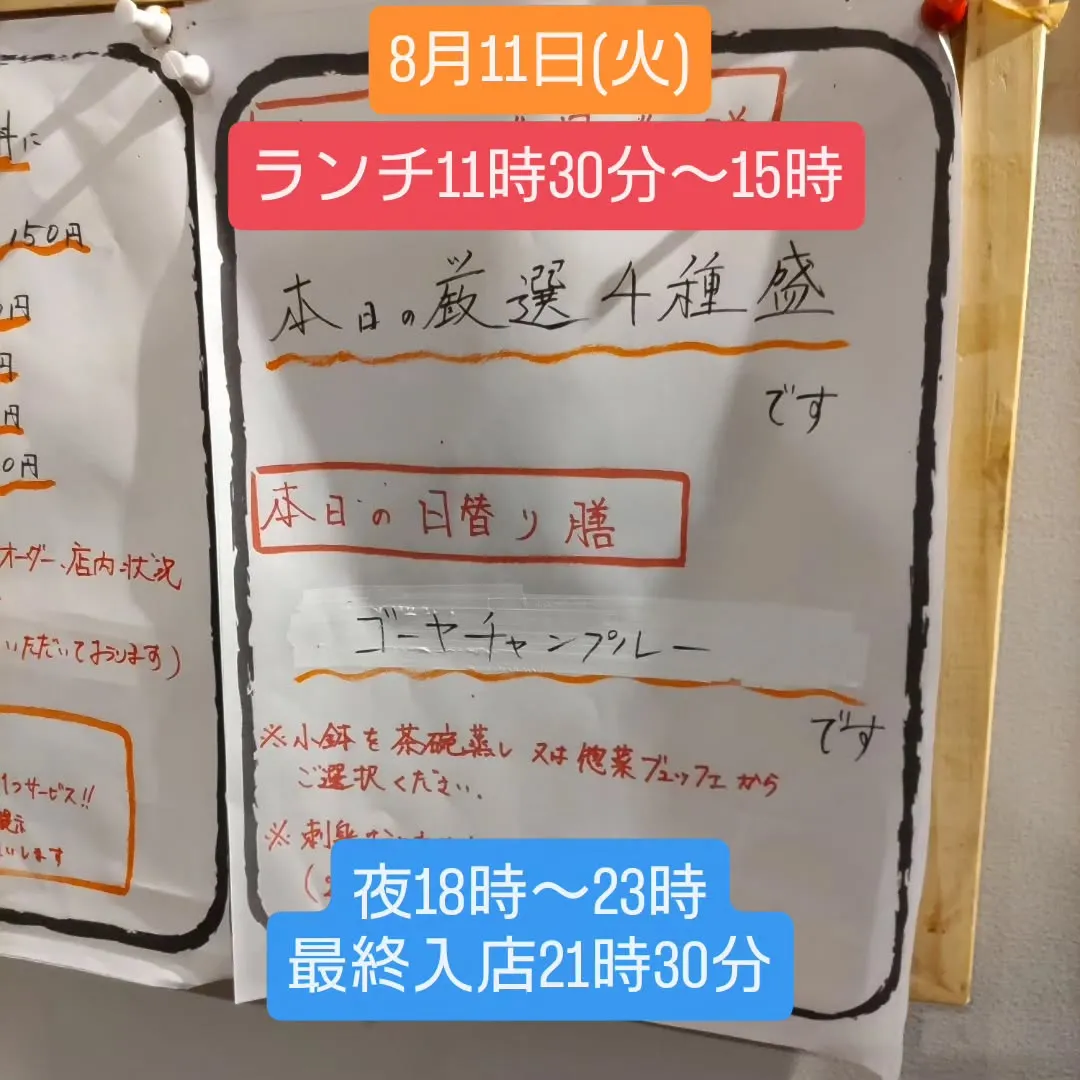 8月11日(火)
ランチ11時30分〜15時
本日の厳選4種盛
です
本日の日替り膳
ゴーヤチャンプルー
です
※小鉢を茶碗蒸し又は惣菜ブュッフェから
ご選択ください。
※刺身
夜18時〜23時
最終入店21時30分
に
150円
円
円
円
0円
オーダー、店内状況
いただいております)
1つサービス!!
提示
いします